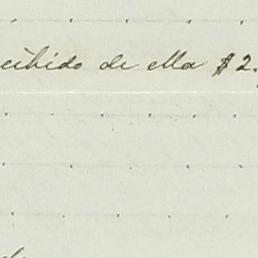 ecibido de ella $2.